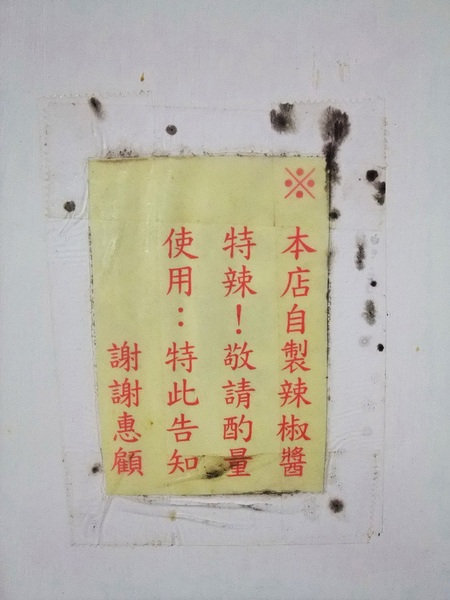 ※本店自製辣椒醬
特辣！敬請酌量
使用：特此告知
謝謝惠顧